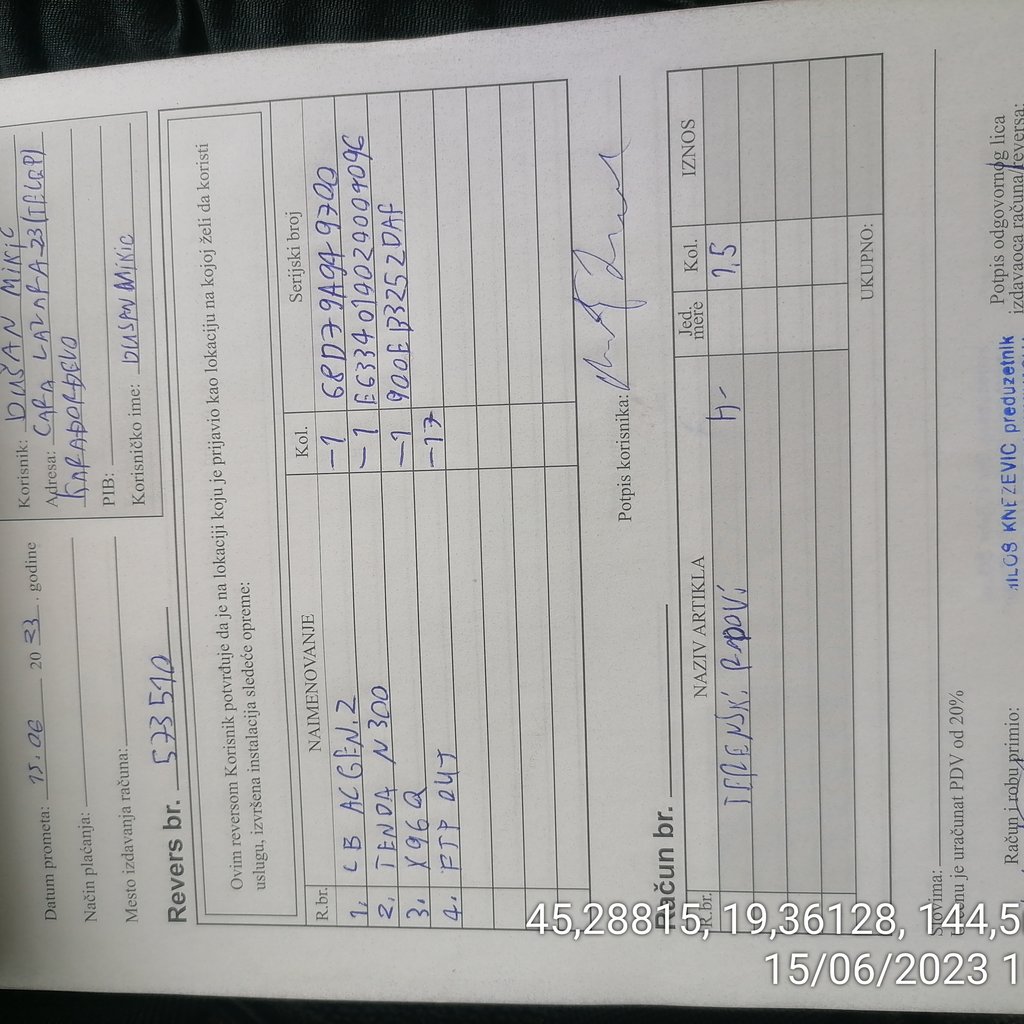 Datum prometa: 15.06 2023. godine
Način plaćanja:
Mesto izdavanja računa:
Korisnik: DUŠAN MIKIĆ
Adresa: CARA LAZARA 23 (TELEP)
KARAĐORĐEVO
PIB:
Korisničko ime: DUSAN MIKIC
Revers br. 573510
Ovim reversom Korisnik potvrđuje da je na lokaciji koju je prijavio kao lokaciju na kojoj želi da koristi
uslugu, izvršena instalacija sledeće opreme:
R.br. NAIMENOVANJE Kol. Serijski broj
1. LB AC GEN.2 -1 68D79A949700
2. TENDA N300 -1 E6334019029004096
3. X96Q -1 900EB3252DAF
4. FTP OUT -17
Potpis korisnika:
Račun br.
R.br. NAZIV ARTIKLA Jed. mere Kol. IZNOS
TERENSKI RADOVI H- 1,5
UKUPNO:
Slovima:
Cenu je uračunat PDV od 20%
Račun i robu primio:
MILOS KNEZEVIC preduzetnik
Potpis odgovornog lica
izdavaoca računa/reversa:
45,28815, 19,36128, 144,5
15/06/2023 1